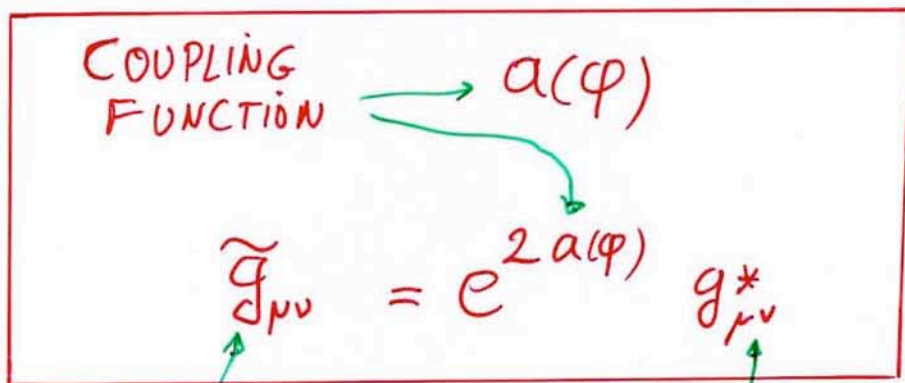 COUPLING
FUNCTION → a(φ)
g̃μν = e^{2a(φ)} g*μν